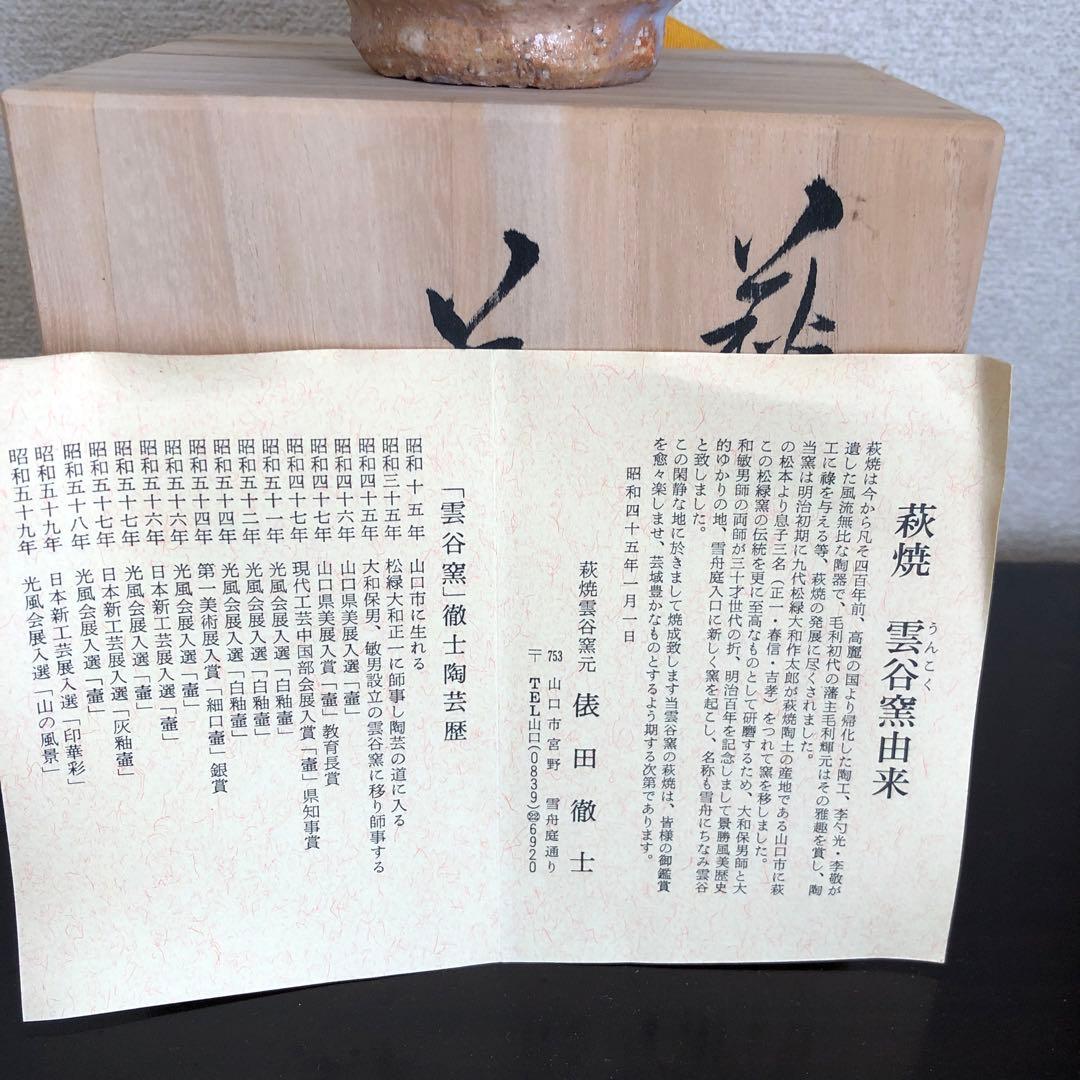 萩
萩焼 雲谷窯由来
うんこく
萩焼は今から凡そ四百年前、高麗の国より帰化した陶工、李勺光・李敬が
遺した風流無比な陶器で、毛利初代の藩主毛利輝元はその雅趣を賞し、陶
工に祿を与える等、萩焼の発展に尽くされました。
当窯は明治初期に九代松緑大和作太郎が萩焼陶土の産地である山口市に萩
の松本より息子三名（正一・春信・吉孝）をつれて窯を移しました。
この松緑窯の伝統を更に至高なものとして研磨するため、大和保男師と大
和敏男師の両師が三十才世代の折、明治百年を記念しまして景勝風美歴史
的ゆかりの地、雪舟庭入口に新しく窯を起こし、名称も雪舟にちなみ雲谷
と致しました。
この閑静な地に於きまして焼成致します当雲谷窯の萩焼は、皆様の御鑑賞
を愈々楽しませ、芸域豊かなものとするよう期する次第であります。
昭和四十五年一月一日
萩焼雲谷窯元 俵田徹士
〒753 山口市宮野 雪舟庭通り
TEL山口(0839)㉒6920
「雲谷窯」徹士陶芸歴
昭和十五年 山口市に生れる
昭和三十五年 松緑大和正一に師事し陶芸の道に入る
昭和四十五年 大和保男、敏男設立の雲谷窯に移り師事する
昭和四十六年 山口県美展入選「壷」
昭和四十七年 山口県美展入賞「壷」教育長賞
昭和四十七年 現代工芸中国部会展入賞「壷」県知事賞
昭和五十一年 光風会展入選「白釉壷」
昭和五十二年 光風会展入選「白釉壷」
昭和五十四年 光風会展入選「白釉壷」
昭和五十四年 第一美術展入賞「細口壷」銀賞
昭和五十六年 光風会展入選「壷」
昭和五十六年 日本新工芸展入選「壷」
昭和五十七年 光風会展入選「壷」
昭和五十七年 日本新工芸展入選「灰釉壷」
昭和五十八年 光風会展入選「壷」
昭和五十九年 日本新工芸展入選「印華彩」
昭和五十九年 光風会展入選「山の風景」